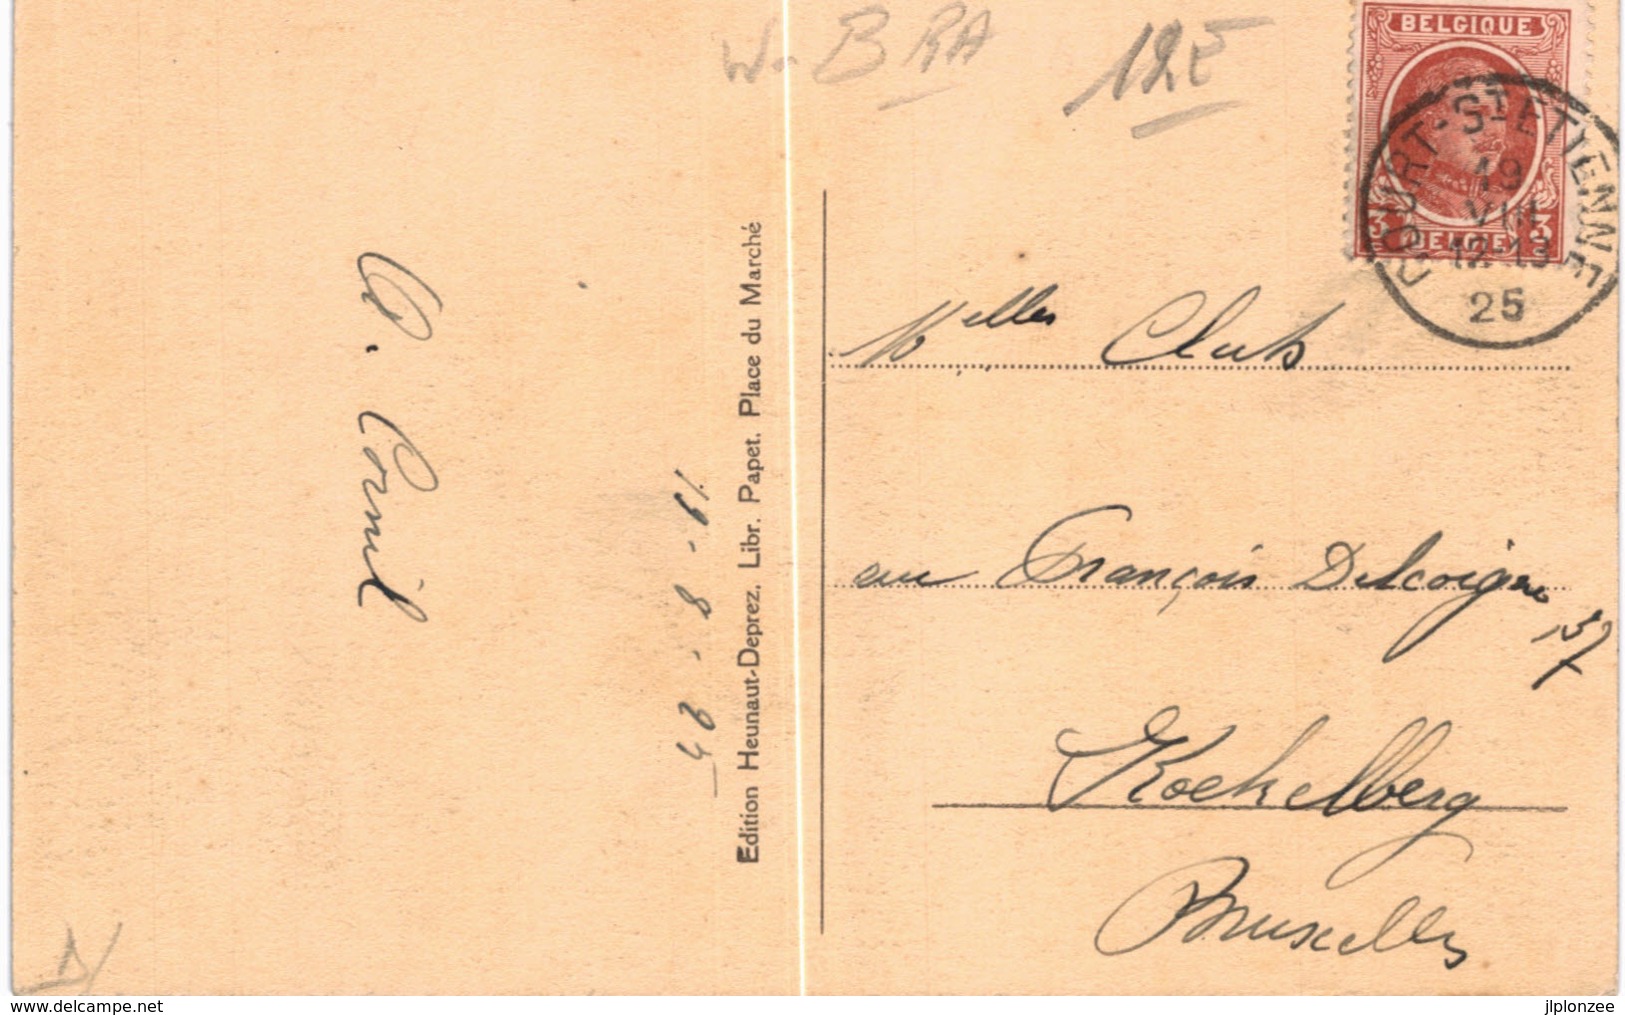 W. BRA
12E
BELGIQUE
3 3
BELGIE
COURT-ST ETIENNE
19
VIII
12-13
25
A. Cornil
Edition Heunaut-Deprez, Libr. Papet. Place du Marché
Melles Cluts
François Delcoigne
157
Koekelberg
Bruxelles
delcampe.net
jlplonzee